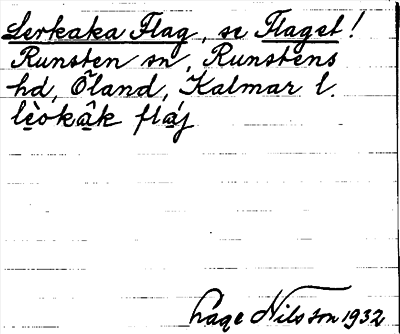 Lerkaka Flag, se Flaget!
Runsten sn, Runstens
hd, Öland, Kalmar l.
lèokâk fláj
Lage Nilsson 1932